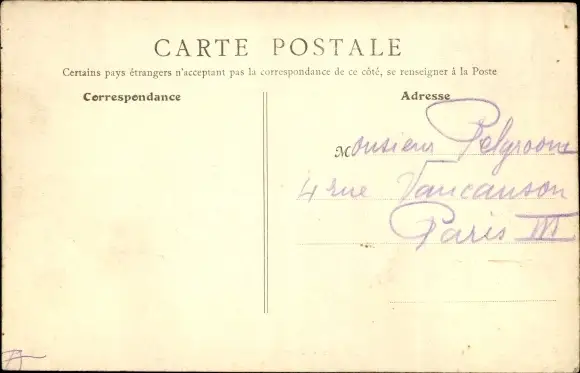 CARTE POSTALE
Certains pays étrangers n'acceptant pas la correspondance de ce côté, se renseigner à la Poste
Correspondance
Adresse
Monsieur Pelgroom
4 rue Vaucanson
Paris III